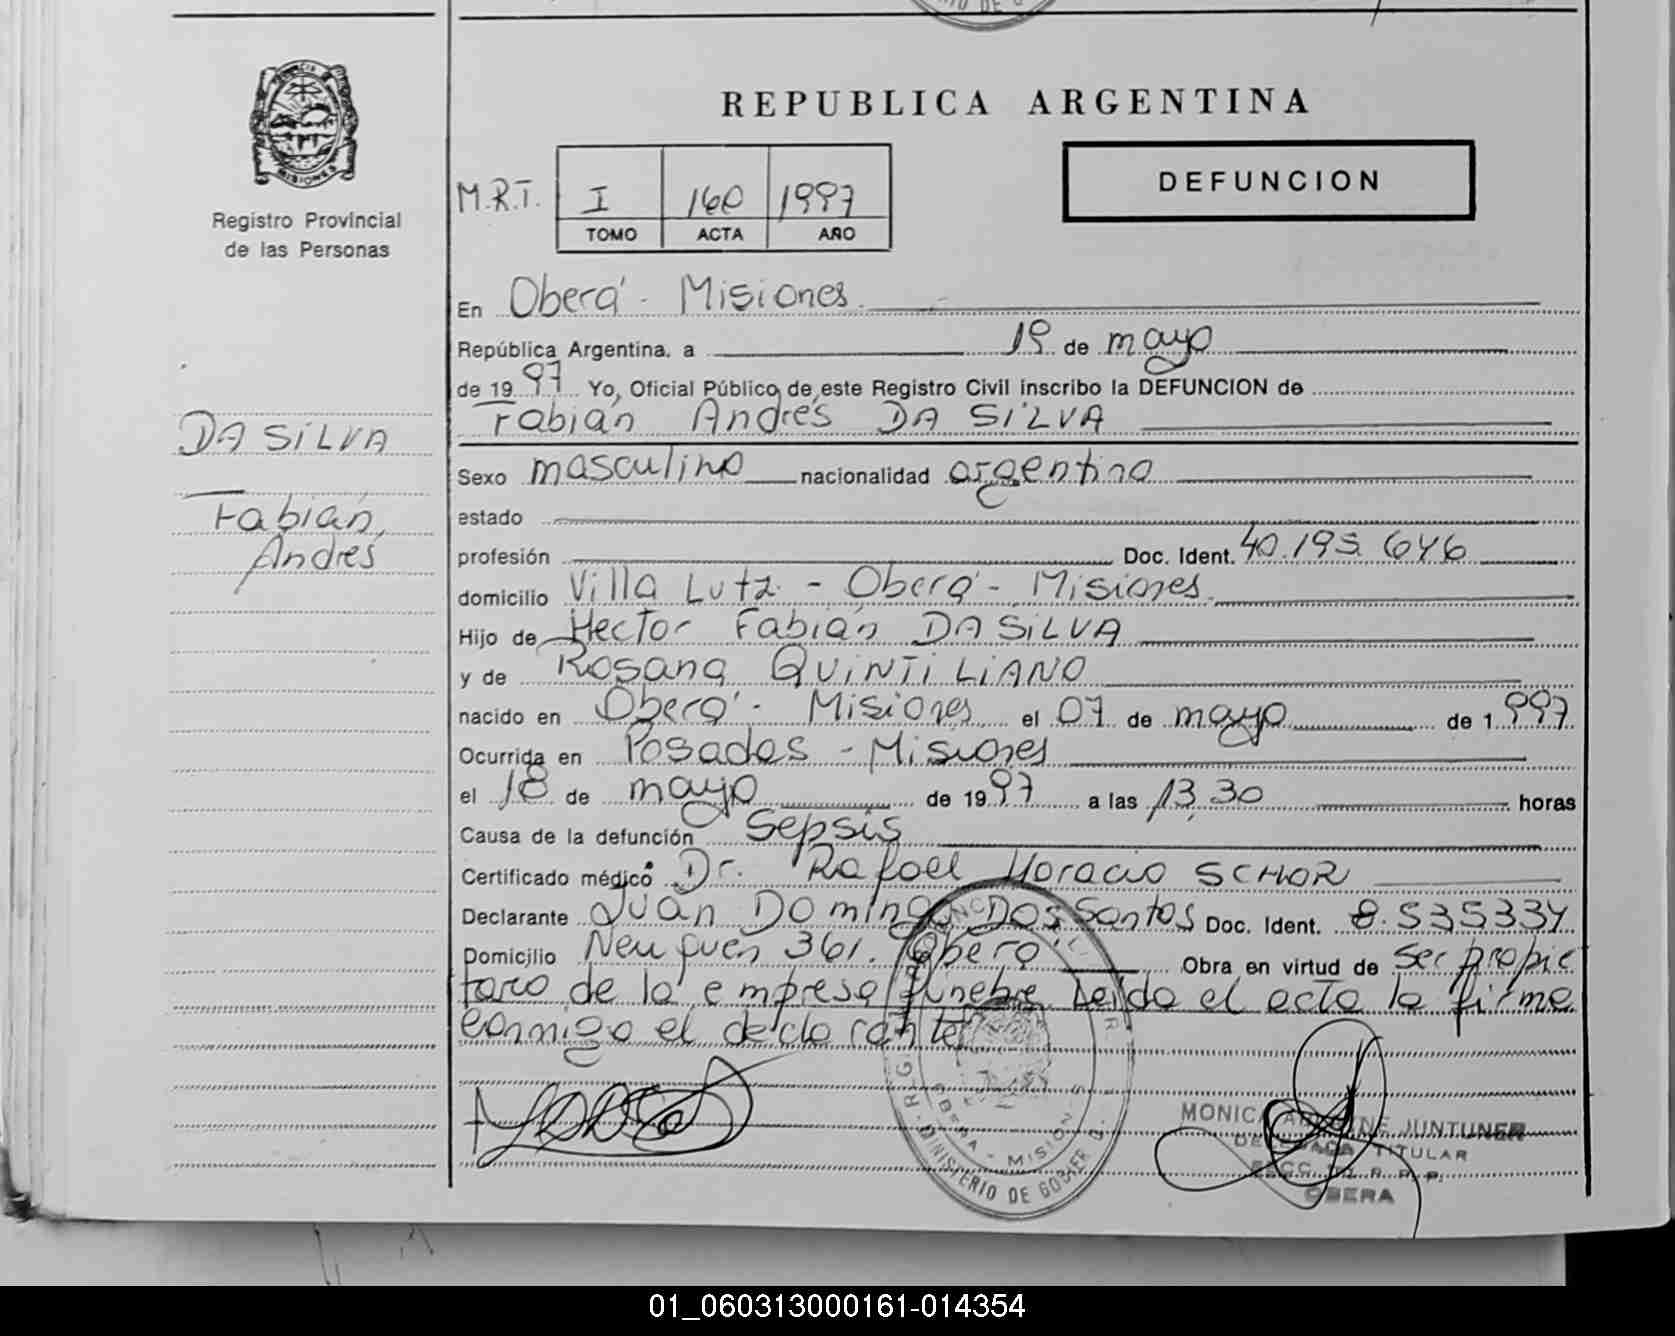 REPUBLICA ARGENTINA
PROVINCIA DE
MISIONES
Registro Provincial
de las Personas
M.R.T. I 160 1997
TOMO ACTA AÑO
DEFUNCION
En Oberá - Misiones
República Argentina, a 19 de mayo
de 1997 Yo, Oficial Público de este Registro Civil inscribo la DEFUNCION de
Fabián Andrés DA SILVA
DA SILVA
Fabián,
Andrés
Sexo masculino nacionalidad argentina
estado
profesión Doc. Ident. 40.195.646
domicilio Villa Lutz - Oberá - Misiones
Hijo de Hector Fabián DA SILVA
y de Rosana QUINTILIANO
nacido en Oberá - Misiones el 07 de mayo de 1.997
Ocurrida en Posadas - Misiones
el 18 de mayo de 1997 a las 13,30 horas
Causa de la defunción Sepsis
Certificado médico Dr. Rafael Horacio SCHOR
Declarante Juan Domingo Dos Santos Doc. Ident. 8.535334
Domicilio Neuquen 361. Oberá Obra en virtud de ser propie
tario de la empresa fúnebre. Leida el acta la firma
conmigo el declarante
OBERA - MISIONES
MINISTERIO DE GOBIER
MONICA JUNTUNER
DELEGADA TITULAR
R.P.P.
OBERA
01_060313000161-014354